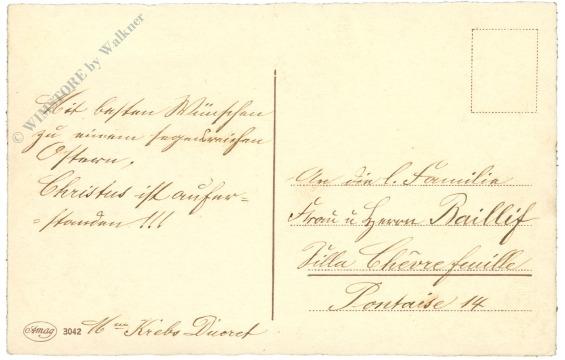 © WIMSTORE by Walkner
Mit besten Wünschen
zu einem segensreichen
Ostern.
Christus ist aufer-
-standen !!!
An die l. Familie
Frau u Herrn Baillif
Villa Chèvrefeuille
Pontaise 14
Amag 3042 Mme Krebs-Ducret